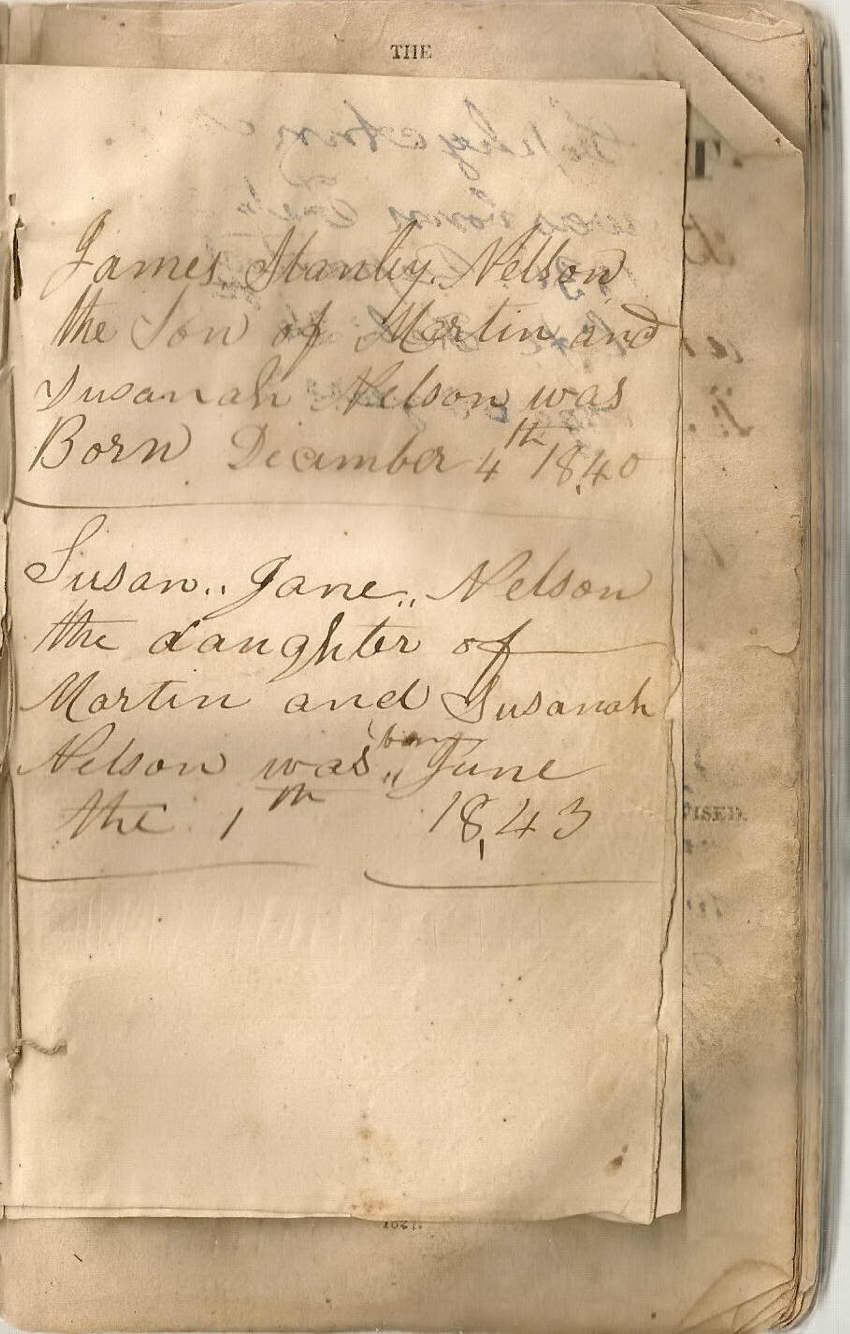 THE
James Stanley Nelson
the Son of Martin and
Susanah Nelson was
Born Decimber 4th 1840
Susan,, Jane,, Nelson
the daughter of
Martin and Susanah
Nelson was,, born June
the 1th 1843
VISED.